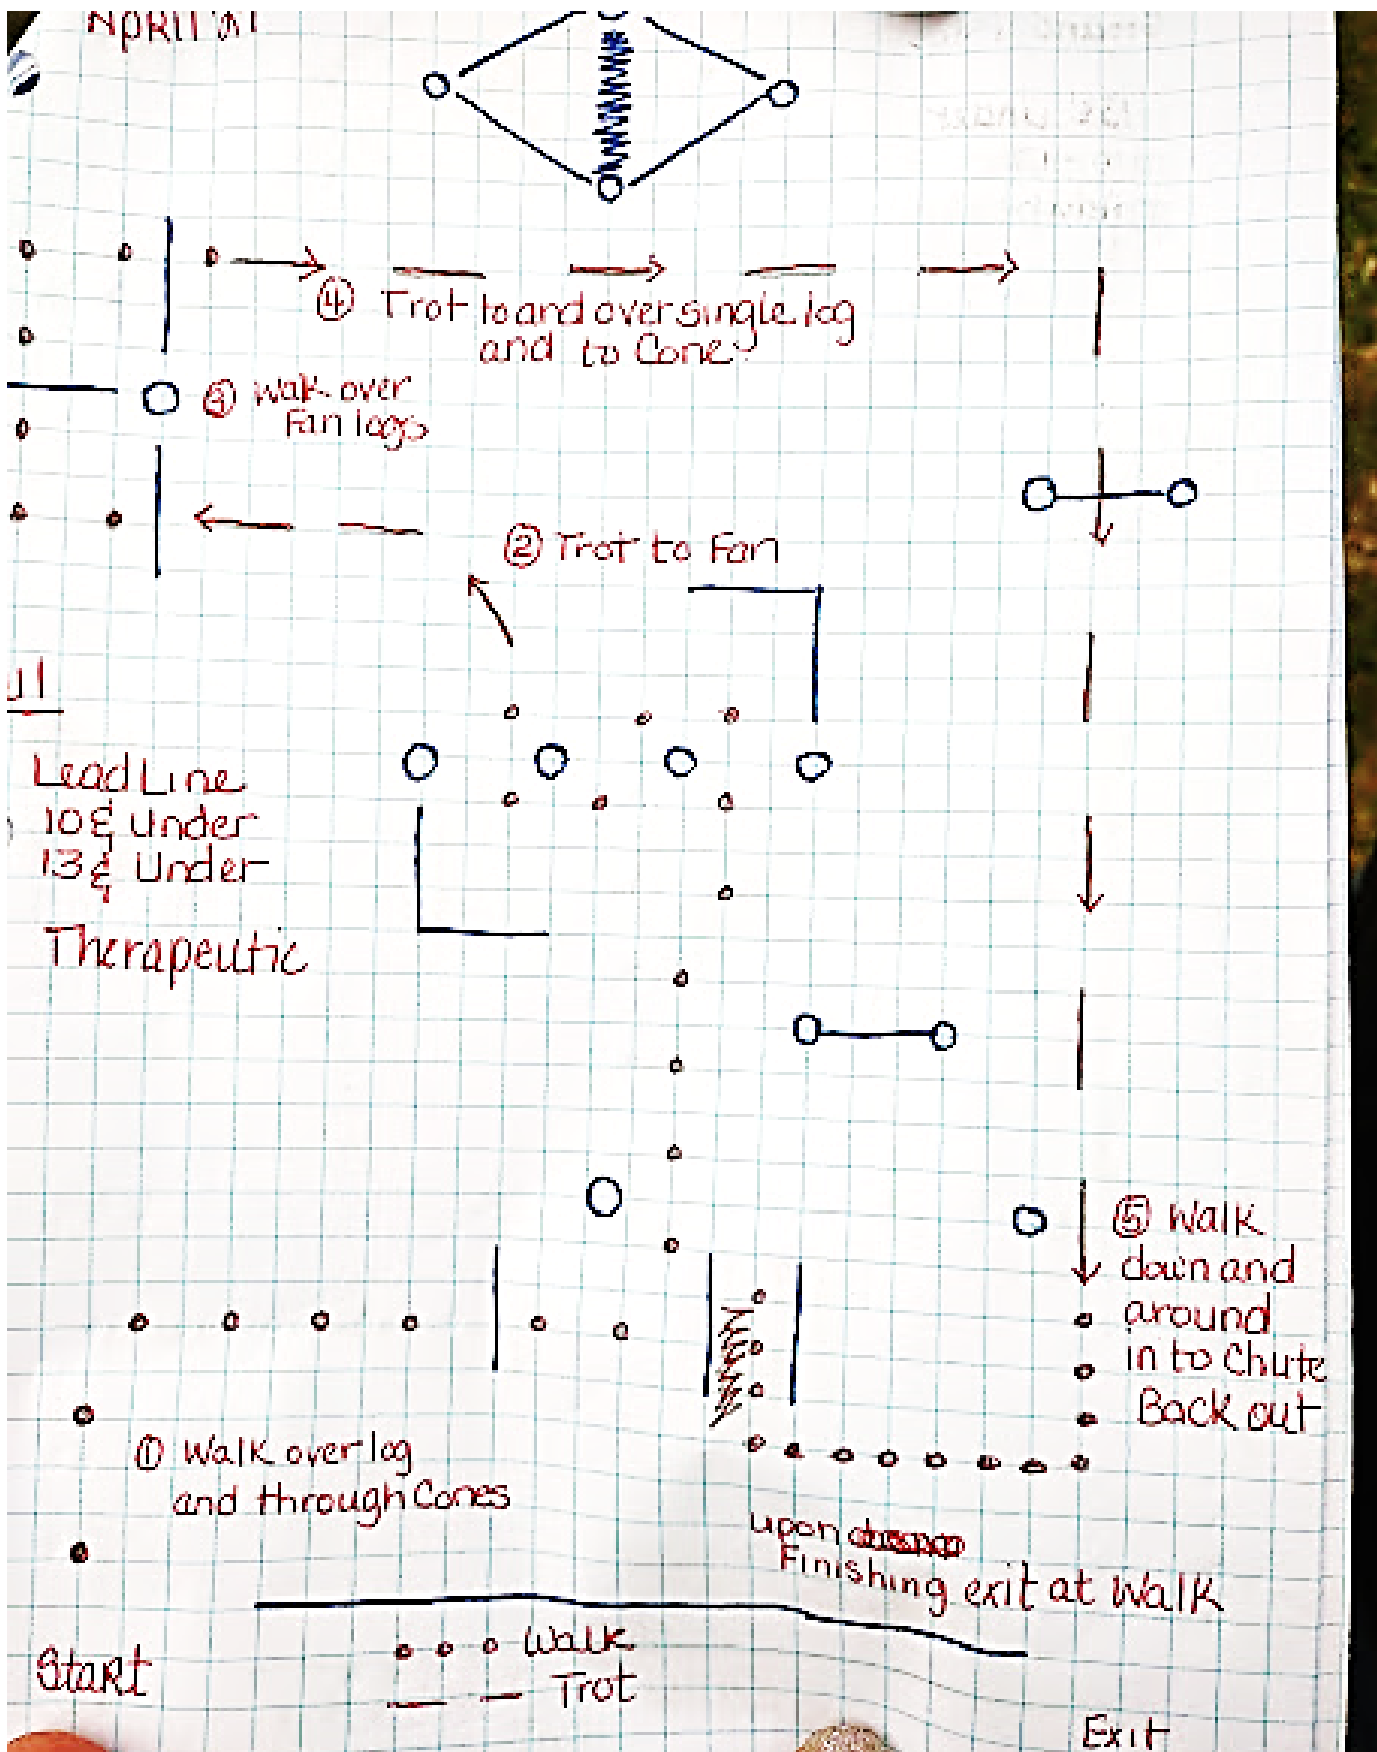 ④ Trot to and over single log
and to Cone
③ Walk over
Fan logs
② Trot to Fan
Lead Line
10 & Under
13 & Under
Therapeutic
⑤ Walk
down and
around
in to Chute
Back out
① Walk over log
and through Cones
upon
Finishing exit at Walk
Walk
Trot
Start
Exit